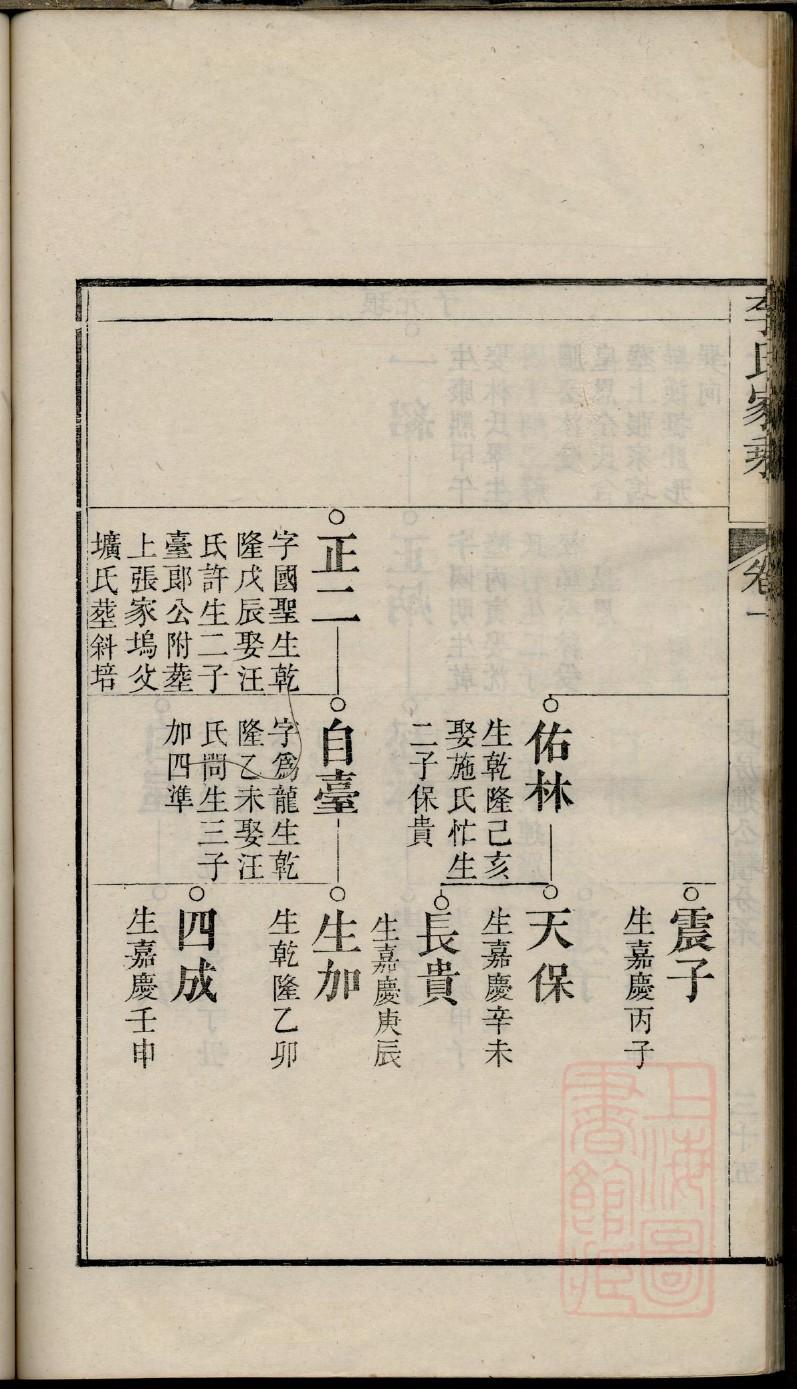 李氏家乘
卷一
震子
生嘉慶丙子
佑林
生乾隆己亥
娶施氏忙生
二子保貴
天保
生嘉慶辛未
長貴
生嘉慶庚辰
正二
字國聖生乾
隆戊辰娶汪
氏許生二子
臺郎公附塟
上張家塢父
壙氏塟斜培
自臺
字爲龍生乾
隆乙未娶汪
氏問生三子
加四準
生加
生乾隆乙卯
四成
生嘉慶壬申
上海圖
書館藏